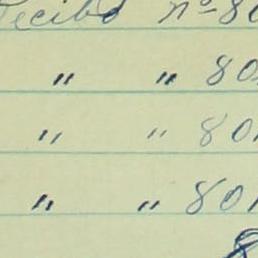 Recibo nº 80
" " 80
" " 80
" " 80
8